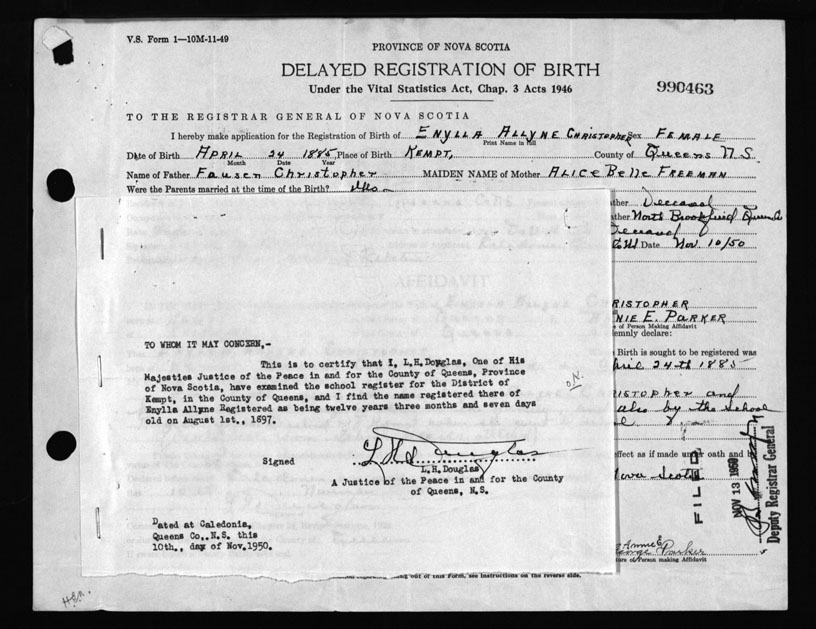 V.S. Form 1—10M-11-49
PROVINCE OF NOVA SCOTIA
DELAYED REGISTRATION OF BIRTH
Under the Vital Statistics Act, Chap. 3 Acts 1946
990463
TO THE REGISTRAR GENERAL OF NOVA SCOTIA
I hereby make application for the Registration of Birth of ENYLLA ALLYNE CHRISTOPHER Sex FEMALE
Print Name in full
Date of Birth APRIL 24 1885, Place of Birth KEMPT, County of Queens N.S.
Month Date Year
Name of Father Fausen Christopher MAIDEN NAME of Mother ALICE Belle FREEMAN
Were the Parents married at the time of the Birth?
ather Deceased
ather North Brookfield Queens Co
Deceased
Date Nov. 10/50
AFFIDAVIT
RISTOPHER
NIE E. PARKER
e of Person Making Affidavit
lemnly declare:
Birth is sought to be registered was
pril 24th 1885
RISTOPHER and
also by the school
effect as if made under oath and by
Nova Scotia
TO WHOM IT MAY CONCERN,-
This is to certify that I, L.H.Douglas, One of His
Majesties Justice of the Peace in and for the County of Queens, Province
of Nova Scotia, have examined the school register for the District of
Kempt, in the County of Queens, and I find the name registered there of
Enylla Allyne Registered as being twelve years three months and seven days
old on August 1st., 1897.
Signed L H Douglas
L.H.Douglas
A Justice of the Peace in and for the County
of Queens, N.S.
Dated at Caledonia,
Queens Co., N.S. this
10th., day of Nov.1950.
FILED
NOV 13 1950
Deputy Registrar General
Annie E
George Parker
ture of Person making Affidavit
ing out of this Form, see instructions on the reverse side.